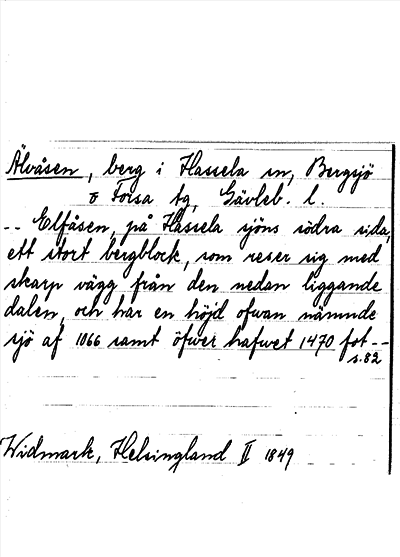 Älvåsen, berg i Hassela sn, Bergsjö
o Forsa tg, Gävleb. l.
-- Elfåsen, på Hassela sjöns södra sida,
ett stort bergblock, som reser sig med
skarp vägg från den nedan liggande
dalen, och har en höjd ofvan nämnde
sjö af 1066 samt öfver hafwet 1470 fot --
s. 82
Widmark, Helsingland II 1849